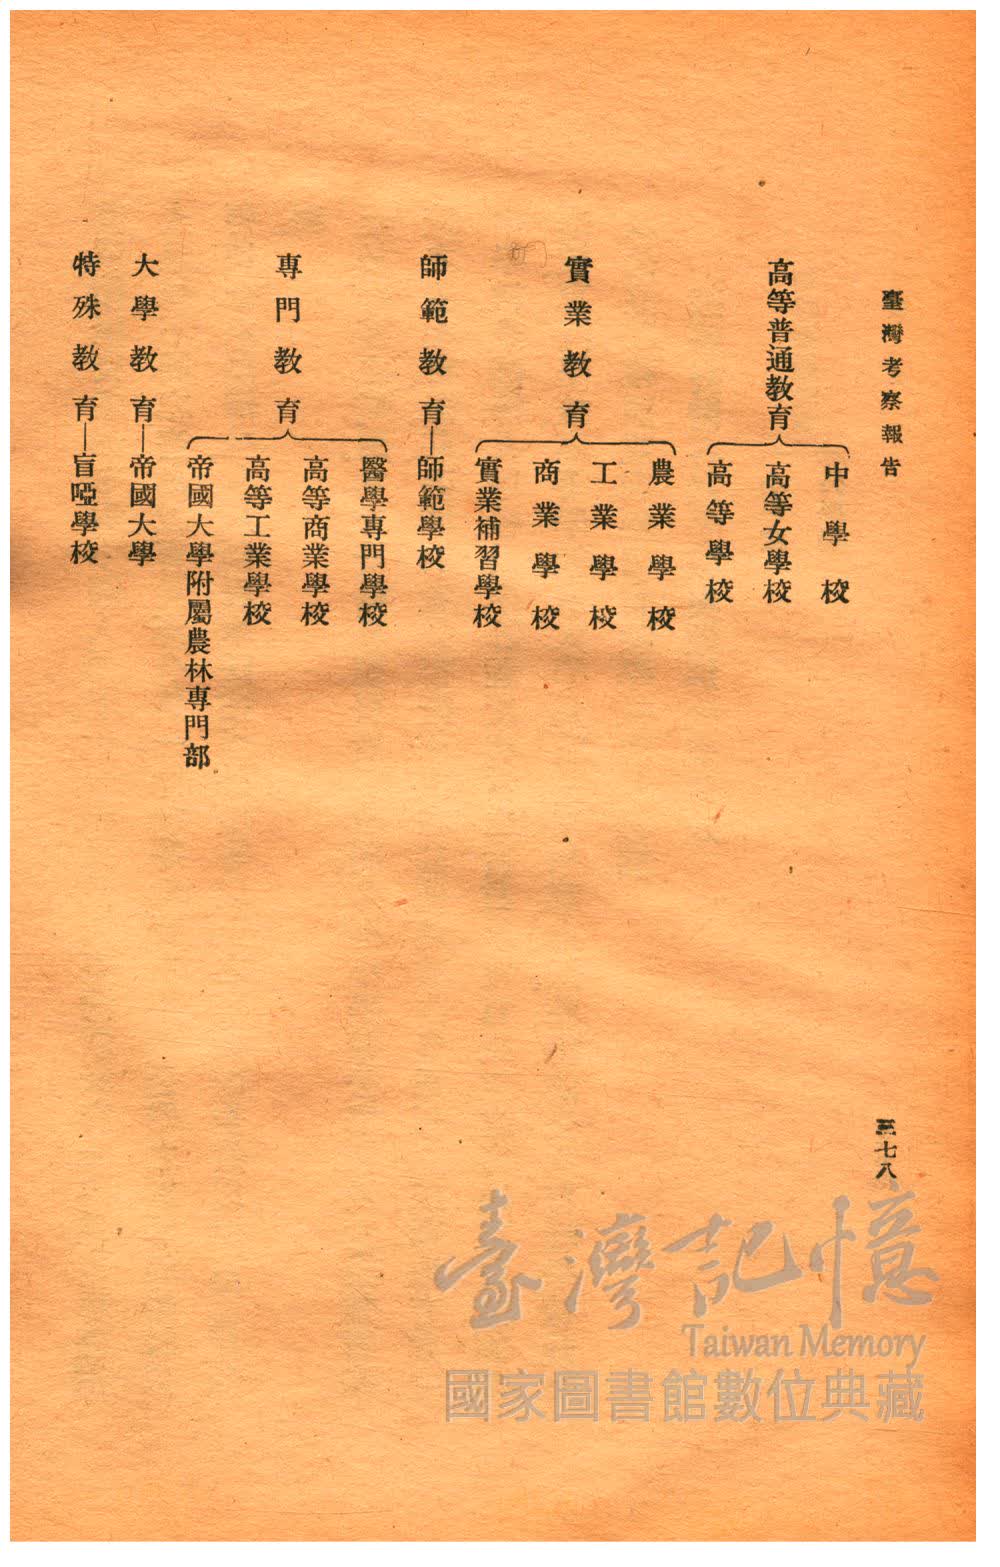 臺灣考察報告
三七八
高等普通教育
中學校
高等女學校
高等學校
實業教育
農業學校
工業學校
商業學校
實業補習學校
師範教育—師範學校
專門教育
醫學專門學校
高等商業學校
高等工業學校
帝國大學附屬農林專門部
大學教育—帝國大學
特殊教育—盲啞學校
臺灣記憶
Taiwan Memory
國家圖書館數位典藏